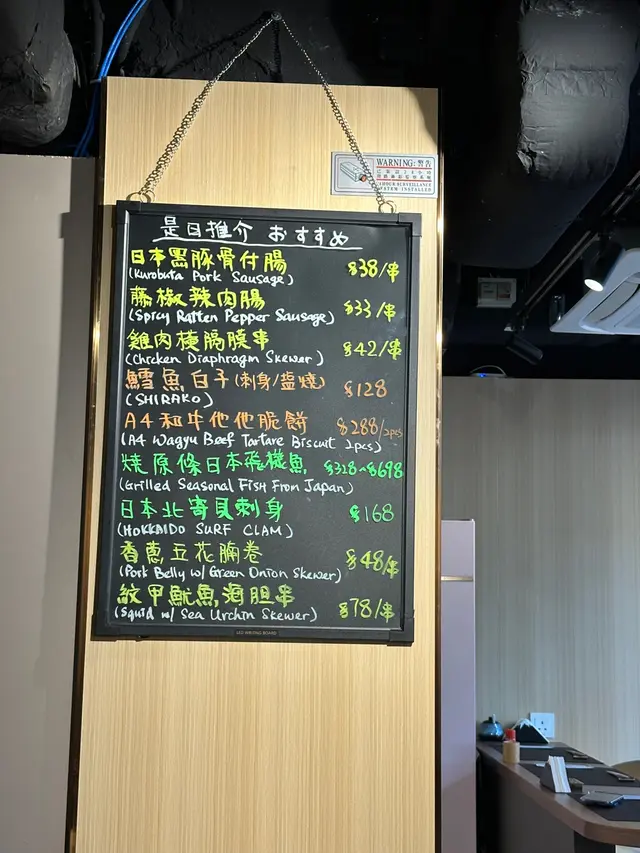 是日推介 おすすめ
日本黑豚骨付腸 $38/串
(Kurobuta Pork Sausage)
藤椒辣肉腸 $33/串
(Spicy Ratten Pepper Sausage)
雞肉橫隔膜串 $42/串
(Chicken Diaphragm Skewer)
鱈魚白子(刺身/鹽燒) $128
(SHIRAKO)
A4和牛他他脆餅 $288/2pcs
(A4 Wagyu Beef Tartare Biscuit 2pcs)
燒原條日本飛機魚 $328~$698
(Grilled Seasonal Fish From Japan)
日本北寄貝刺身 $168
(HOKKAIDO SURF CLAM)
香蔥五花腩卷 $48/串
(Pork Belly w/ Green Onion Skewer)
紋甲魷魚海胆串 $78/串
(Squid w/ Sea Urchin Skewer)
WARNING: 警告
24 HOUR SURVEILLANCE
SYSTEM INSTALLED
LED WRITING BOARD